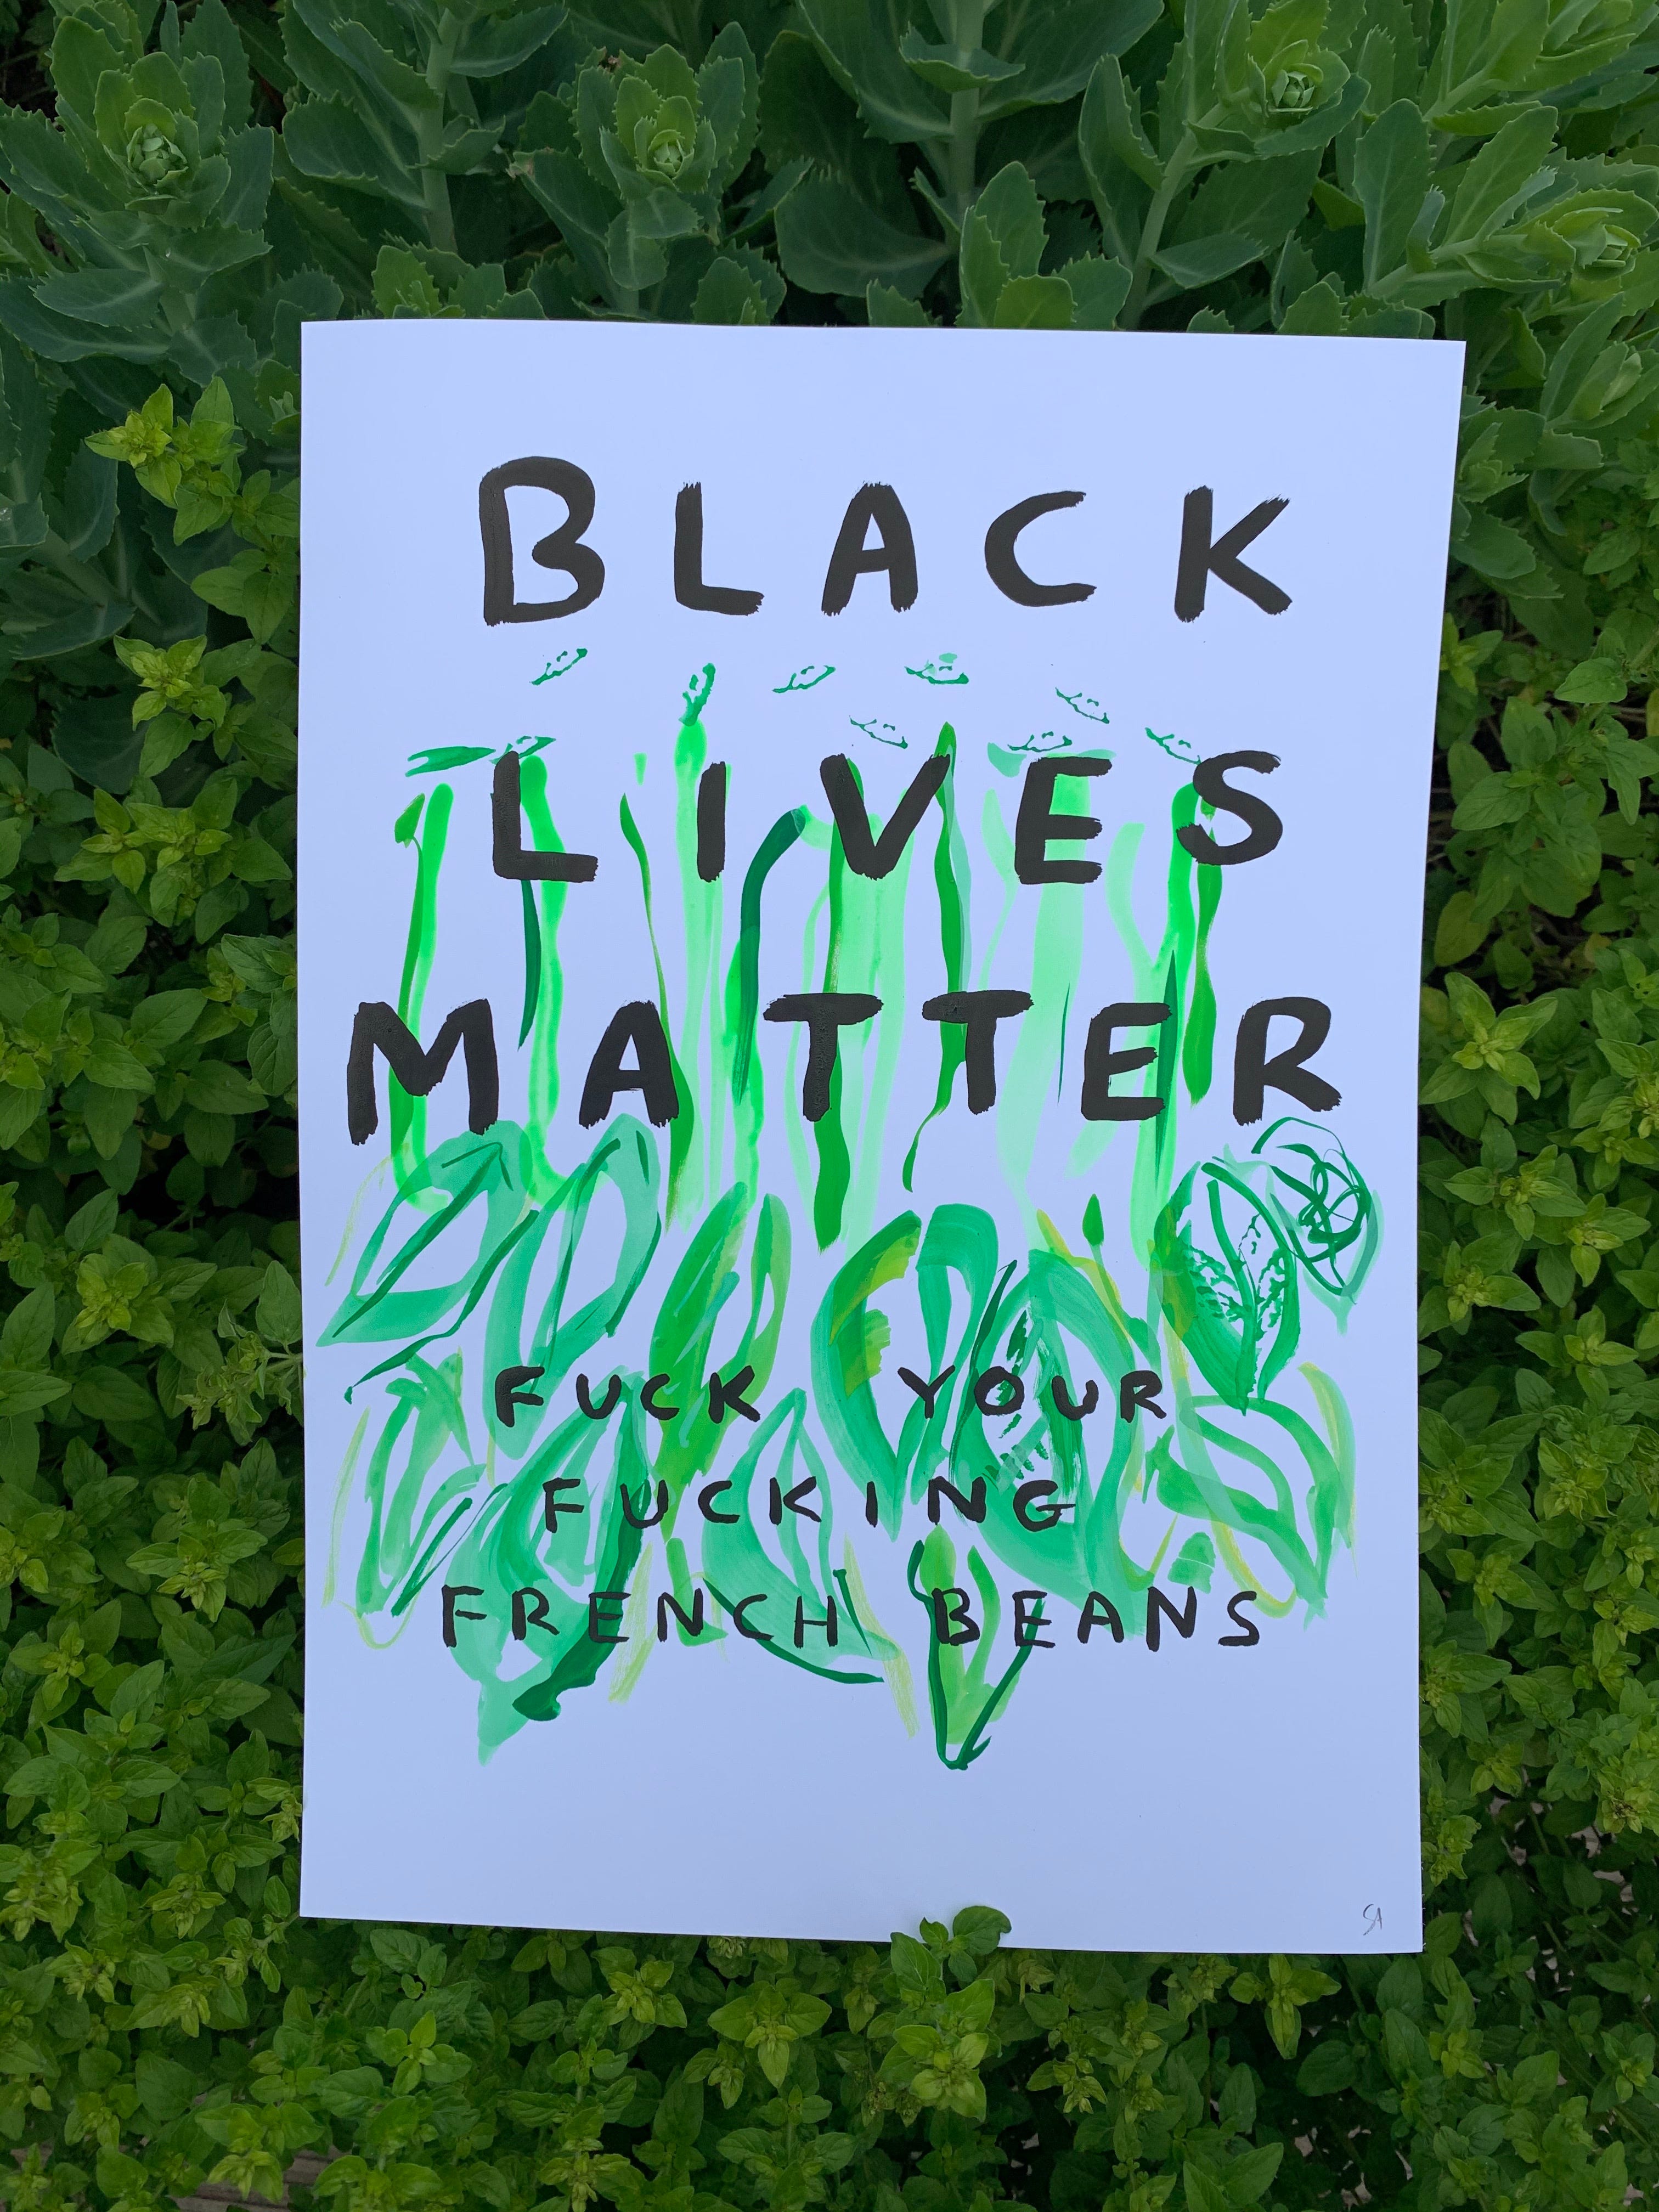 BLACK
LIVES
MATTER
FUCK YOUR
FUCKING
FRENCH BEANS
SA